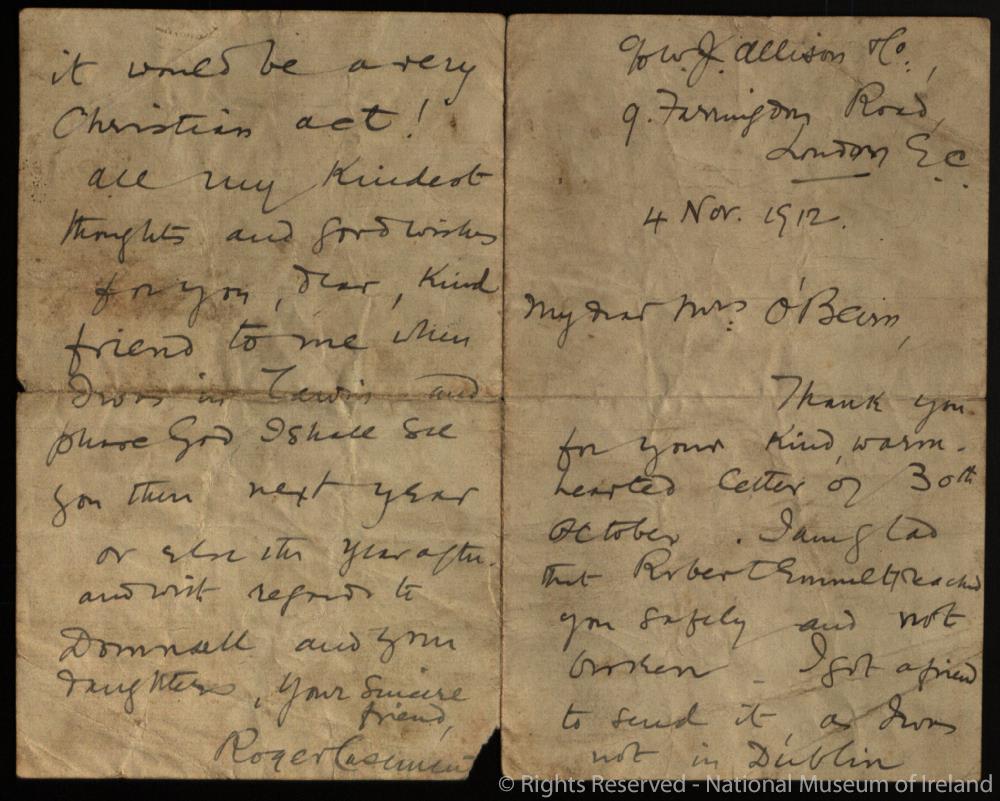 c/o W. J. Allison & Co.,
9. Farringdon Road,
London E.C.
4 Nov. 1912.
My dear Mrs. O'Beirn,
Thank you
for your kind, warm-
hearted letter of 30th
October. I am glad
that Robert Emmet reached
you safely and not
broken - I got a friend
to send it, as I was
not in Dublin
it would be a very
Christian act!
All my kindest
thoughts and good wishes
for you, dear, kind
friend to me when
I was in Tawin and
please God, I shall see
you then next year
or else the year after.
and with regards to
Domnall and your
daughters, your sincere
friend,
Roger Casement
© Rights Reserved - National Museum of Ireland